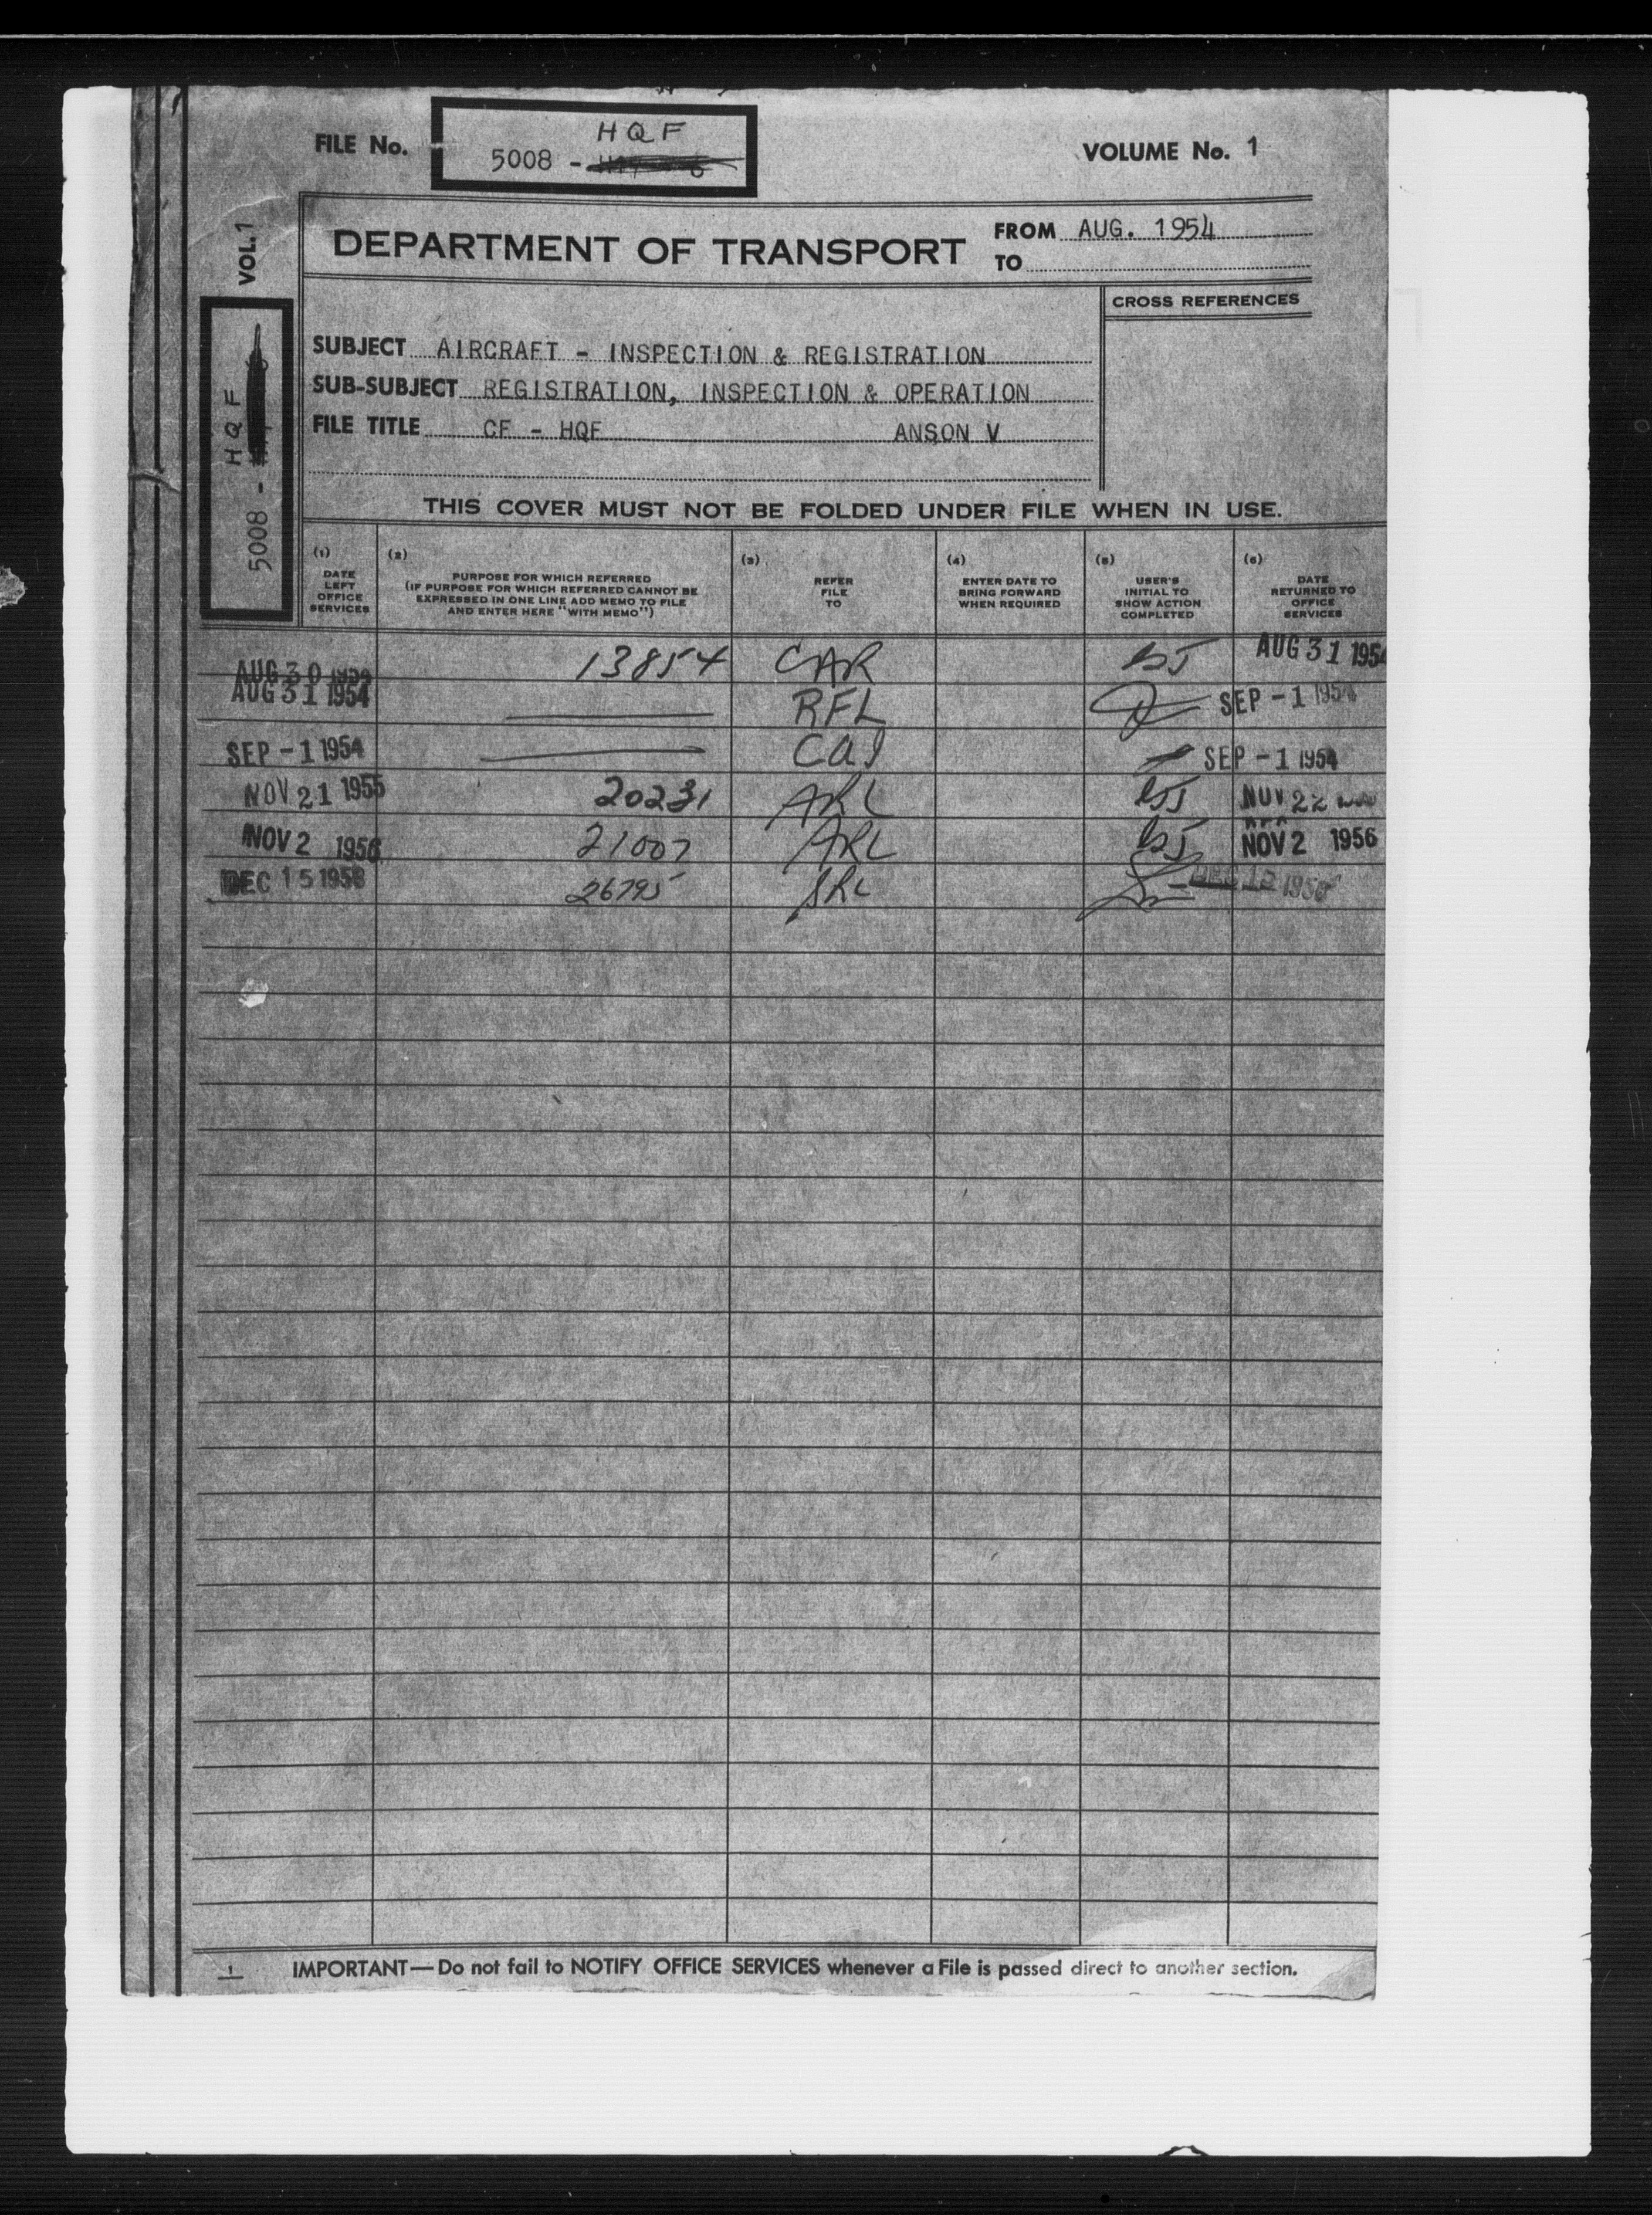 FILE No.
HQF
5008 -
VOLUME No. 1
VOL.1
HQF
5008 -
DEPARTMENT OF TRANSPORT
FROM AUG. 1954
TO
CROSS REFERENCES
SUBJECT AIRCRAFT - INSPECTION & REGISTRATION
SUB-SUBJECT REGISTRATION, INSPECTION & OPERATION
FILE TITLE CF - HQF ANSON V
THIS COVER MUST NOT BE FOLDED UNDER FILE WHEN IN USE.
(1)
DATE
LEFT
OFFICE
SERVICES
(2)
PURPOSE FOR WHICH REFERRED
(IF PURPOSE FOR WHICH REFERRED CANNOT BE
EXPRESSED IN ONE LINE ADD MEMO TO FILE
AND ENTER HERE "WITH MEMO")
(3)
REFER
FILE
TO
(4)
ENTER DATE TO
BRING FORWARD
WHEN REQUIRED
(5)
USER'S
INITIAL TO
SHOW ACTION
COMPLETED
(6)
DATE
RETURNED TO
OFFICE
SERVICES
AUG 30 1954 13854 CAR AUG 31 1954
AUG 31 1954 RFL SEP -1 1954
SEP -1 1954 CAI SEP -1 1954
NOV 21 1955 20231 ARL NOV 22
NOV 2 1956 21007 ARL NOV 2 1956
DEC 15 1958 26795 ARL DEC 15 1958
1
IMPORTANT—Do not fail to NOTIFY OFFICE SERVICES whenever a File is passed direct to another section.